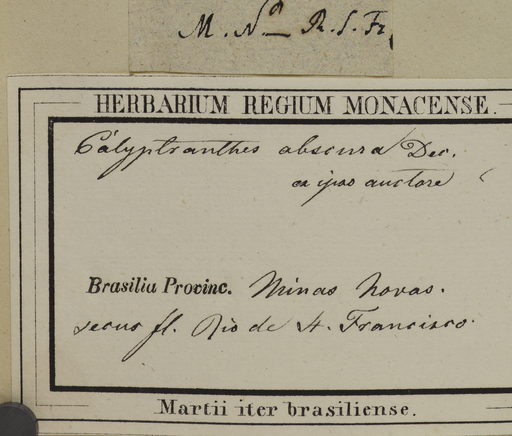 M. N. R. S. Fr.
HERBARIUM REGIUM MONACENSE.
Calyptranthes obscura Dec.
ex ipso auctore
Brasilia Provinc. Minas Novas.
secus fl. Rio de St. Francisco.
Martii iter brasiliense.